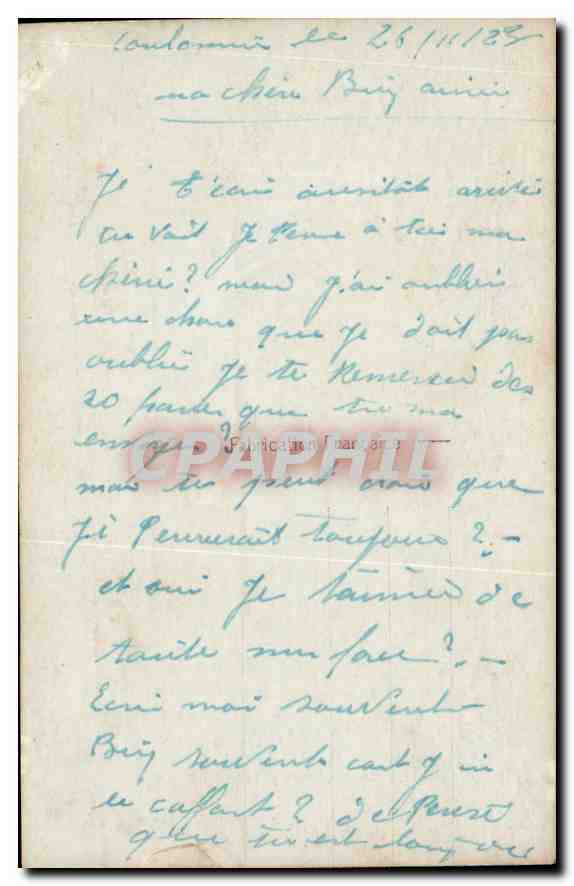 le 26/11/23
ma chère Bien aimée
Je t'écrit aussitôt arrivé
tu voit je pense à toi ma
chérie? mais j'ai oublier
une chose que je doit pas
oublié je te remercie des
20 francs que tu ma
envoyer?
Fabrication Française
CPAPHIL
mais tu peut croire que
je penserait toujours? -
et oui je t'aimer de
toute mes force? -
Ecris moi souvent
Bien souvent cart j
le caffart? de pensé
que tu est